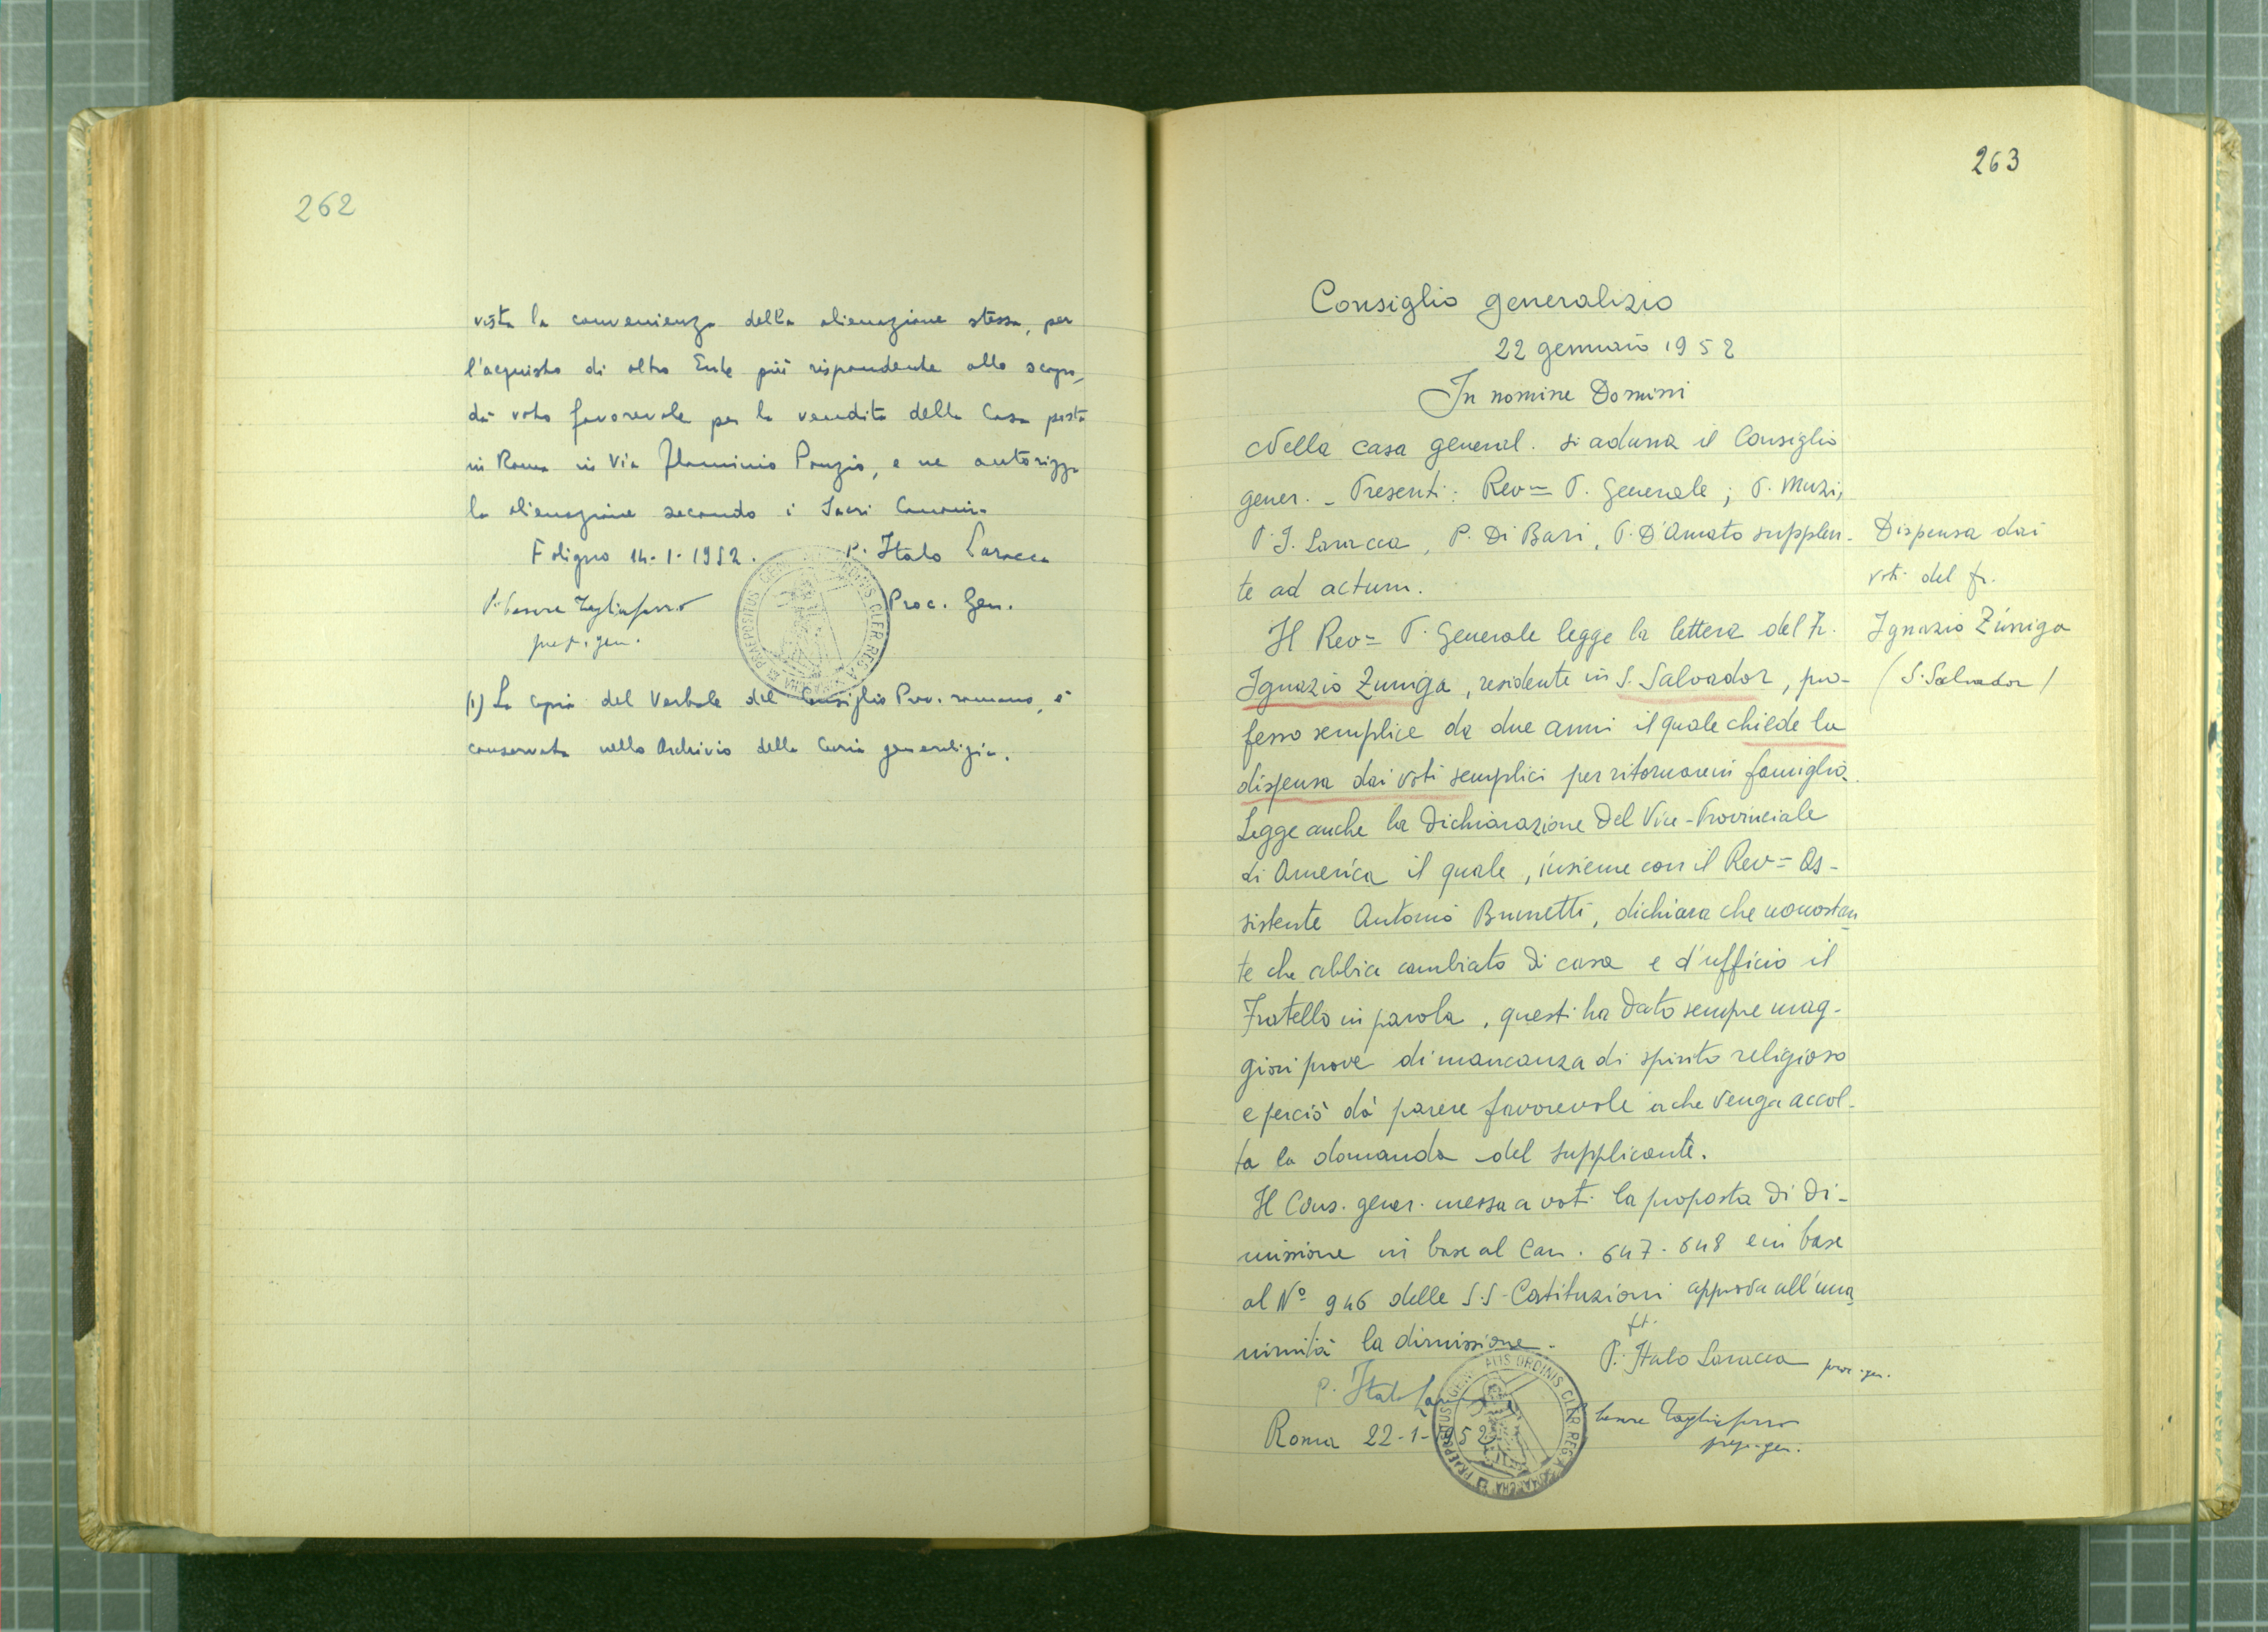 262
vista la convenienza della alienazione stessa, per
l'acquisto di altro Ente più rispondente allo scopo,
dà voto favorevole per la vendita della Casa posta
in Roma in Via Flaminio Ponzio, e ne autorizza
la alienazione secondo i Sacri Canoni.
Foligno 14-1-1952. P. Italo Laracca
P. Cesare Tagliaferro Proc. Gen.
prep. gen.
(1) La copia del Verbale del Consiglio Prov. romano, è
conservata nello Archivio della Curia generalizia.
263
Consiglio generalizio
22 gennaio 1952
In nomine Domini
Nella casa general. si aduna il Consiglio
gener. - Presenti: Rev= P. Generale; P. Muzi,
P. I. Laracca, P. Di Bari, P. D'Amato supplen-
te ad actum.
Il Rev= P. Generale legge la lettera del Fr.
Ignazio Zuniga, residente in S. Salvador, pro-
fesso semplice da due anni il quale chiede la
dispensa dai voti semplici per ritornare in famiglia.
Legge anche la dichiarazione del Vice-Provinciale
di America il quale, insieme con il Rev= As-
sistente Antonio Brunetti, dichiara che nonostan
te che abbia cambiato di casa e d'ufficio il
Fratello in parola, questi ha dato sempre mag-
giori prove di mancanza di spirito religioso
e perciò dà parere favorevole a che venga accol-
ta la domanda del supplicante.
Il Cons. gener. messa a voti la proposta di di-
missione in base al Can. 647-648 e in base
al Nº 946 delle S.S. Costituzioni approva all'una
nimità la dimissione.
ft.
P. Italo Laracca proc. gen.
P. Italo
Roma 22-1-1952
Cesare Tagliaferro
prep. gen.
Dispensa dai
voti del fr.
Ignazio Zúniga
(S. Salvador)
PRAEPOSITUS GENERALIS ORDINIS CLER. REG. A SOMASCHA